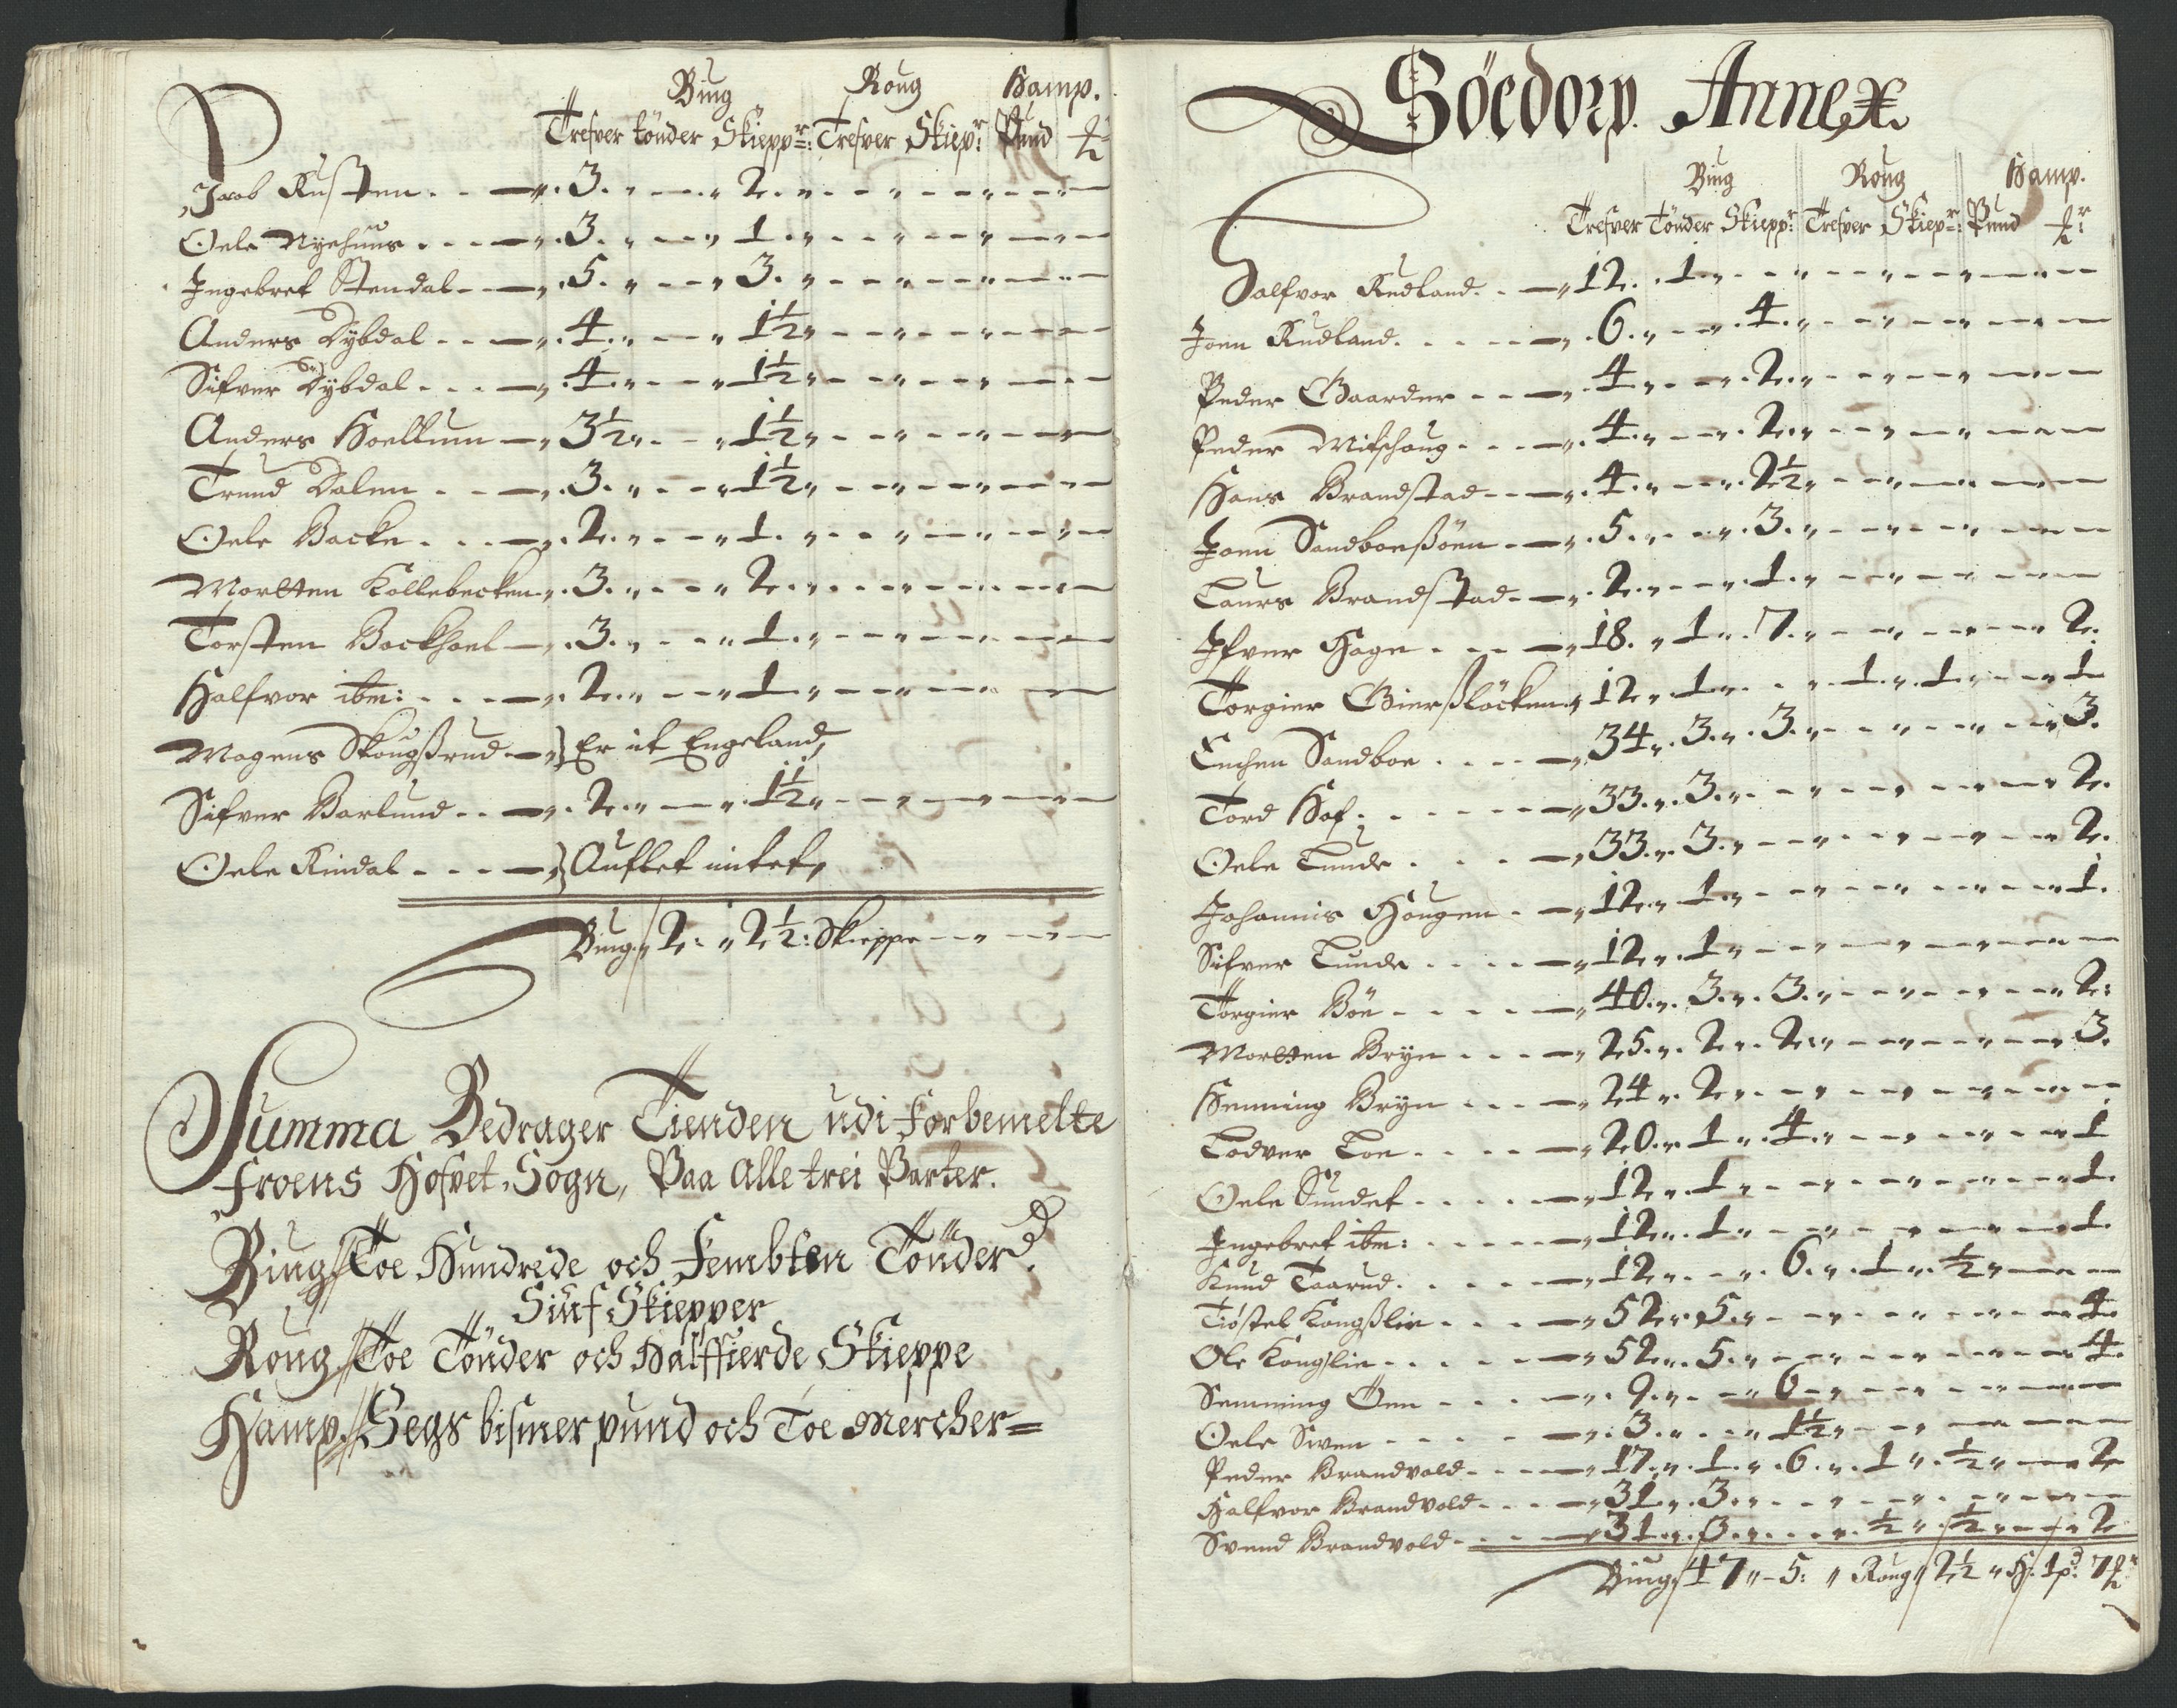 Biug Roug Hamp.
Trefver tönder Skiepp:r Trefver Skiep:r Pund
Jacob Rusten 3. 2.
Oele Nyehuus 3. 1.
Ingebret Stendal 5. 3.
Anders Dybdal 4. 1½
Sifver Dybdal 4. 1½
Anders Hoellum 3½ 1½
Trund Dalen 3. 1½
Oele Backe 2. 1.
Mortten Kollebecken 3. 2.
Torsten Backhoel 3. 1.
Halfvor ibm: 2. 1.
Mogens Skougsrud Er it Engeland,
Sifver Borlund 2. 1½
Oele Rindal Auflet intet,
Biug 2: 2½: Skieppe
Summa Bedrager Tienden udi Forbemelte
Froens Hofvet Sogn, Paa Alle trei Parter.
Biug Toe Hundrede och Fembten Tönder
Siuf Skiepper
Roug Toe Tönder och Halffierde Skieppe
Hamp Segs bismer pund och Toe Mercher
Söedorp Annex
Biug Roug Hamp.
Trefver Tönder Skiepp:r Trefver Skiep:r Pund
Halfvor Rudland 12. 1.
Joen Rudland 6. 4.
Peder Gaarder 4. 2.
Peder Mitschoug 4. 2.
Hans Brandstad 4. 2½
Joen Sandboesöen 5. 3.
Laurs Brandstad 2. 1.
Ifver Hage 18. 1. 7. 2.
Torgier Gierslöcken 12. 1. 1. 1. 1
Enchen Sandboe 34. 3. 3. 3.
Tord Hof 33. 3. 2.
Oele Lunde 33. 3. 2.
Johannis Hougen 12. 1. 1.
Sifver Lunde 12. 1
Torgier Böe 40. 3. 3. 2:
Mortten Bryn 25. 2. 2. 3.
Henning Bryn 24. 2.
Lodver Loe 20. 1. 4. 1
Oele Sundet 12. 1 1.
Ingebret ibm: 12. 1 1.
Knud Taarud 12. 6. 1. ½
Tiöstel Kongslie 52. 5. 4.
Ole Kongslie 52. 5. 4.
Semming Öen 9. 6
Oele Sween 3. 1½
Peder Brandvold 17. 1. 6. 1. ½ 2
Halfvor Brandvold 31. 3.
Svend Brandvold 31. 3. ½ ½ 2
Biug 47 5: Roug 2½ H: 1 p:d 7